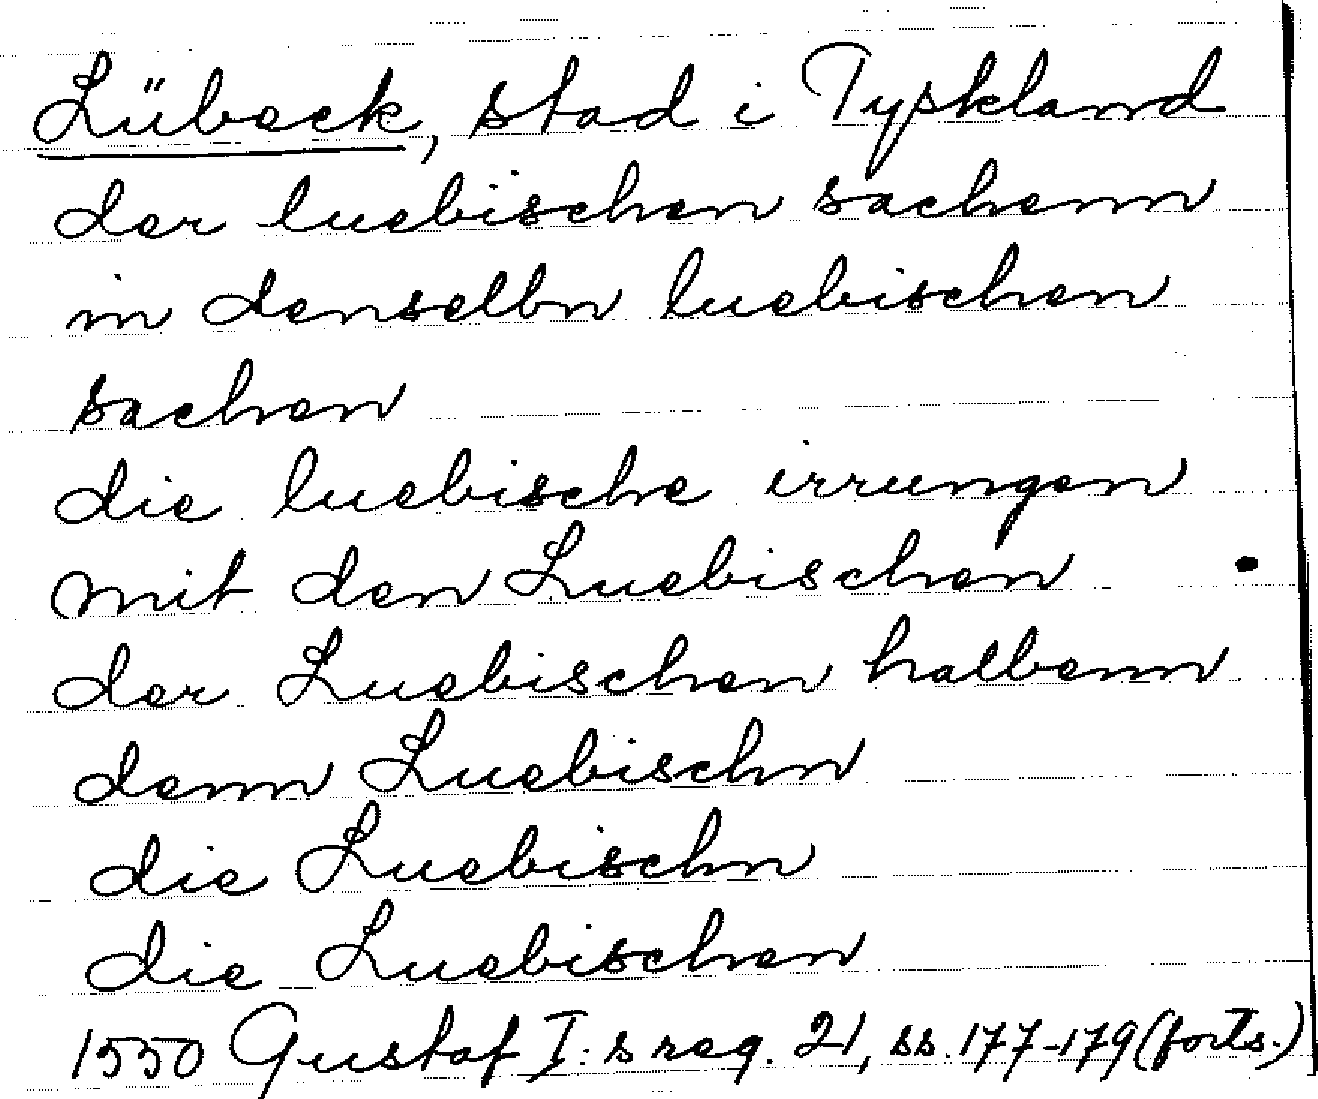 Lübeck, stad i Tyskland
der luebischen sachenn
in denselbn luebischen
sachen
die luebische irrungen
mit den Luebischen
der Luebischen halbenn
denn Luebischn
die Luebischn
die Luebischen
1550 Gustaf I:s reg. 21, ss. 177-179 (forts.)